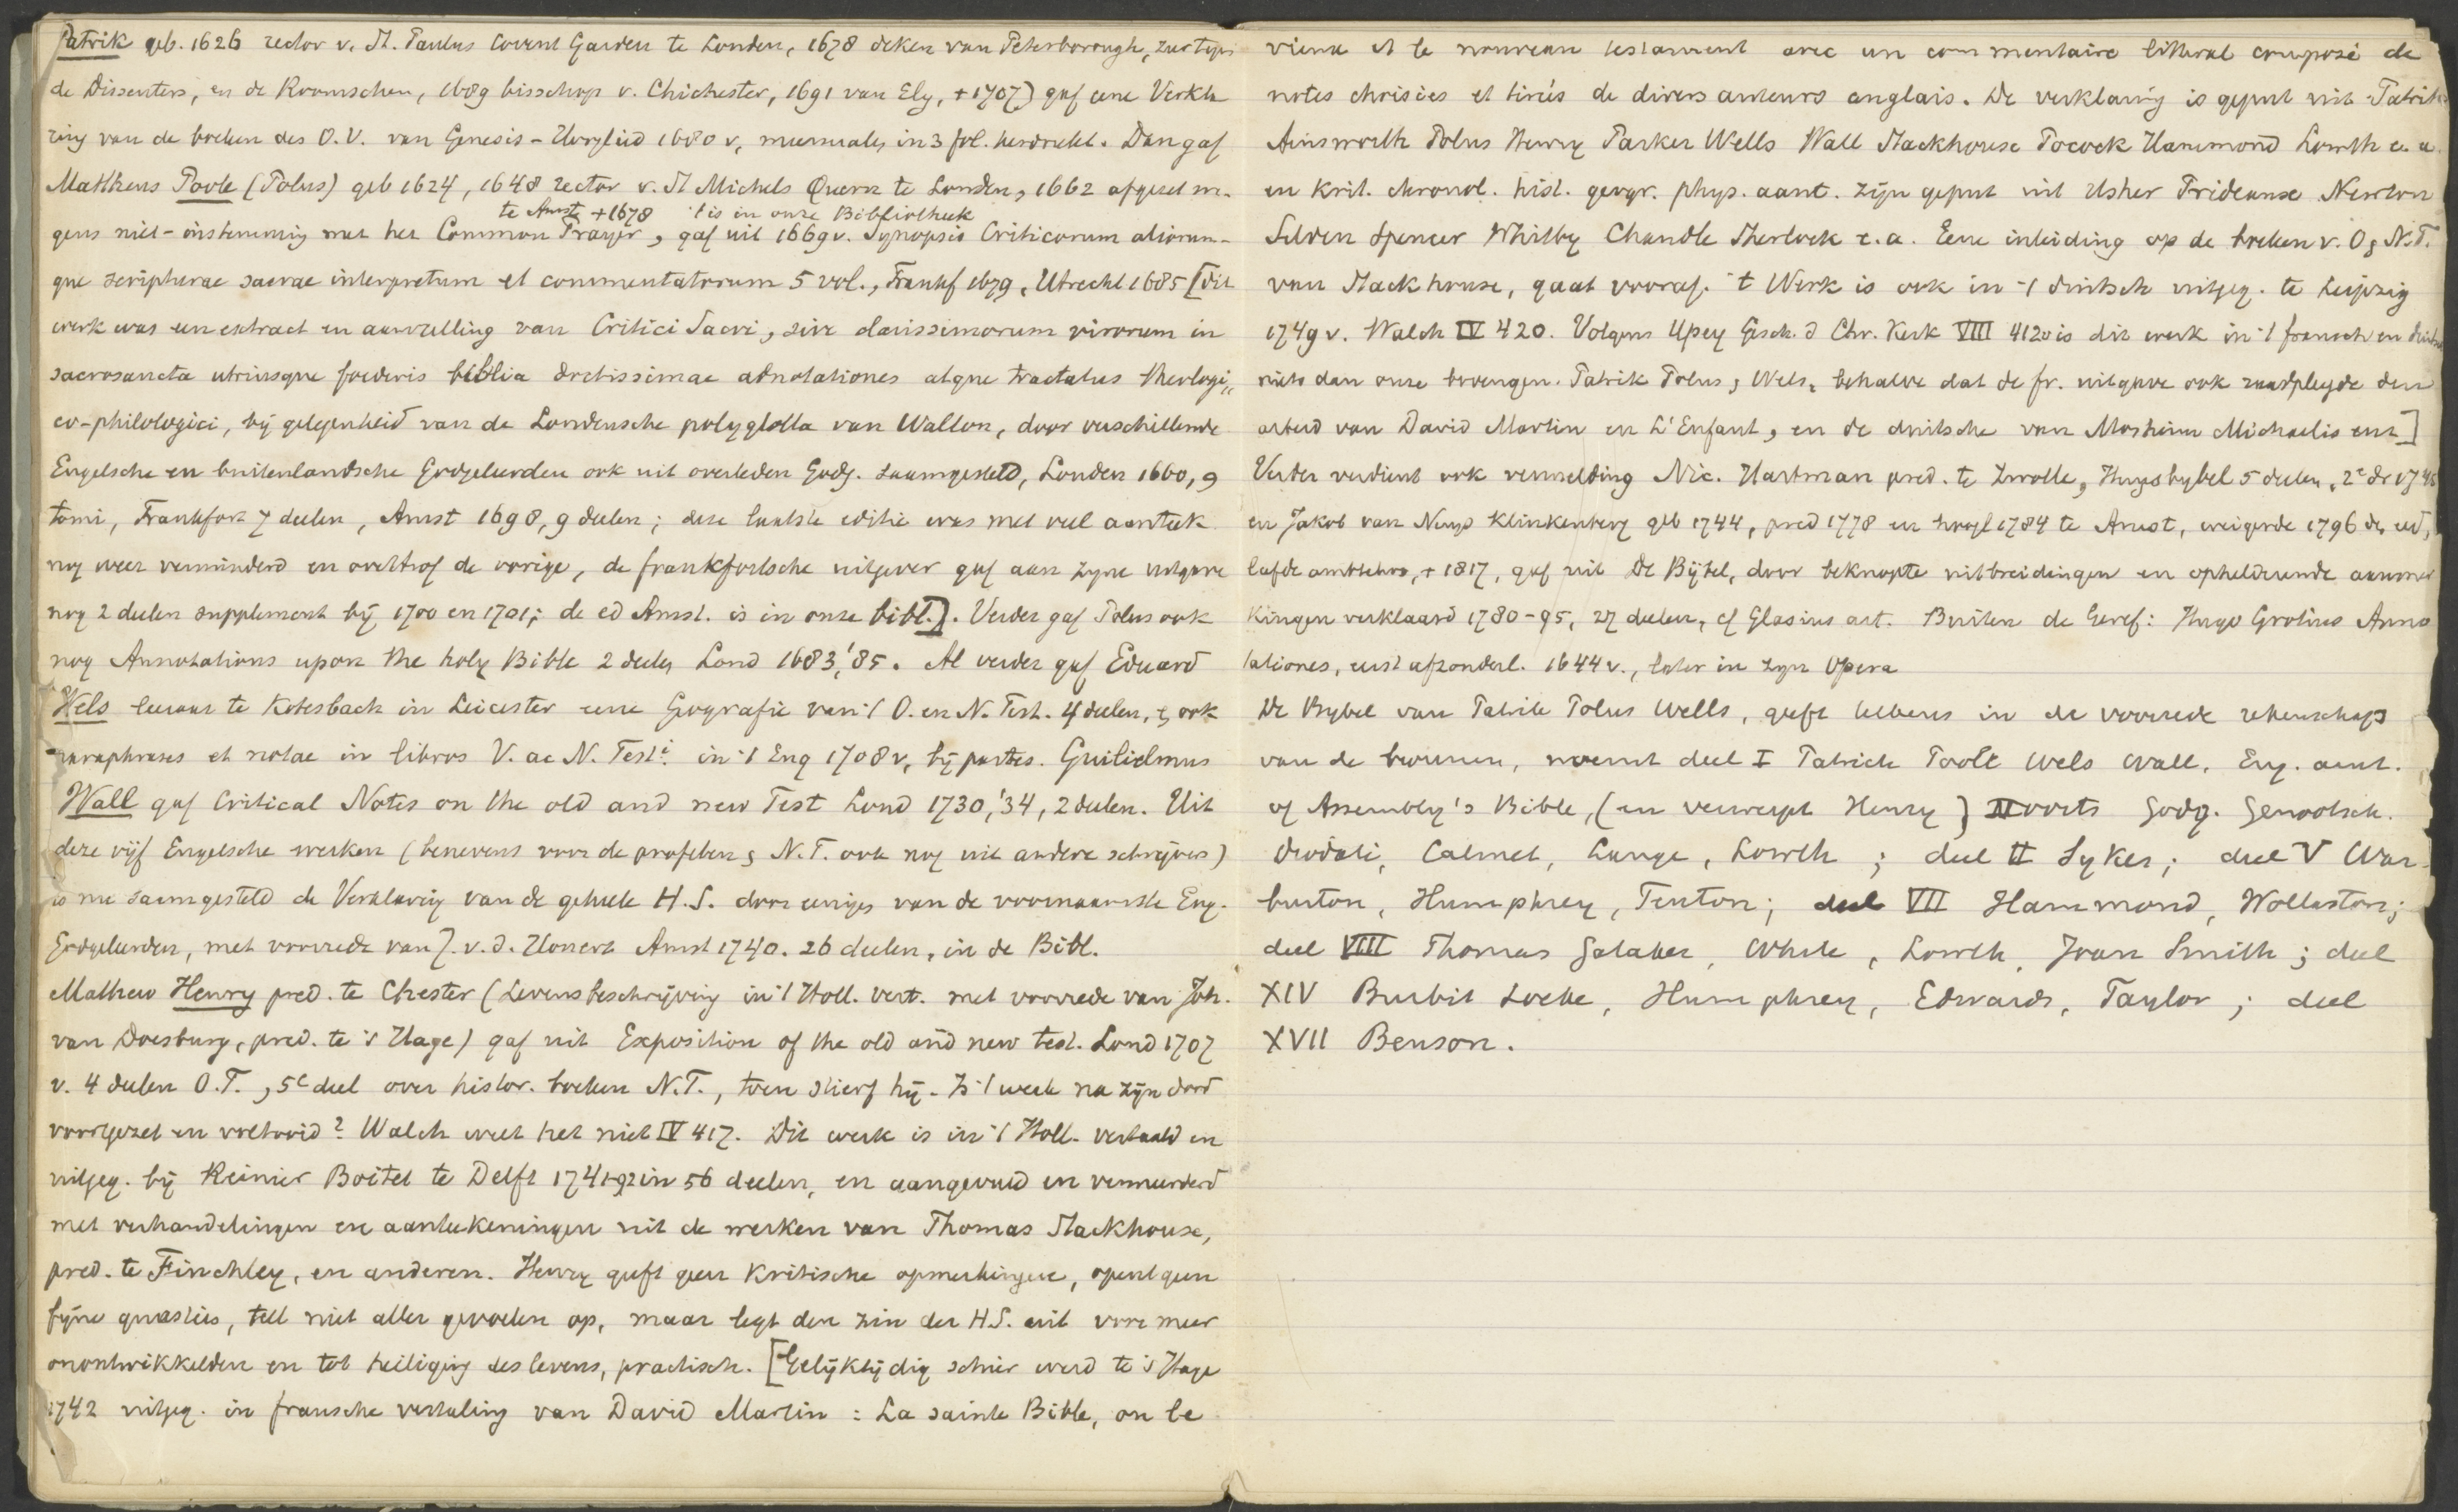 Patrik geb. 1626 rector v. St. Paulus Covent Garden te Londen, 1678 deken van Peterborough,
de Dissenters, en de Roomschen, 1689 bisschop v. Chichester, 1691 van Ely, + 1707) gaf eene Verkla
ring van de boeken des O.V. van Genesis - Hooglied 1680 v, meermalen in 3 fol. herdrukt. Dan gaf
Matthaeus Poole (Polus) geb 1624, 1648 rector v. St Michels Quern te Londen, 1662 afgezet we-
te Amst. + 1678 't is in onze Bibliotheek
gens niet-instemming met het Common Prayer, gaf uit 1669 v. Synopsis Criticorum aliorum-
que scripturae sacrae interpretum et commentatorum 5 vol., Frankf 1679, Utrecht 1685 [Dit
werk was een extract en aanvulling van Critici Sacri, sive clarissimorum virorum in
sacrosancta utriusque foederis biblia doctissimae adnotationes atque tractatus theologi-
co-philologici, bij gelegenheid van de Londensche polyglotta van Walton, door verschillende
Engelsche en buitenlandsche Godgeleerden ook uit overleden Godg. saamgesteld, Londen 1660, 9
tomi, Frankfort 7 deelen, Amst 1698, 9 deelen; deze laatste editie was met veel aanteek.
nog weer vermeerderd en overtrof de vorige, de frankfortsche uitgever gaf aan zijne uitgave
nog 2 deelen supplement bij 1700 en 1701; de ed Amst. is in onze bibl.]. Verder gaf Polus ook
nog Annotations upon the holy Bible 2 deelen Lond 1683, '85. Al verder gaf Eduard
Wels leeraar te Kotesbach in Leicester eene Geografie van 't O. en N. Test. 4 deelen, & ook
paraphrases et notae in libros V. ac N. Testi. in 't Eng 1708 v, bij partes. Guilielmus
Wall gaf Critical Notes on the old and new Test Lond 1730, '34, 2 deelen. Uit
deze vijf Engelsche werken (benevens voor de profeten & N.T. ook nog uit andere schrijvers)
is nu saamgesteld de Verklaring van de geheele H.S. door eenige van de voornaamste Eng.
Godgeleerden, met voorrede van J. v. d. Honert Amst 1740. 26 deelen, in de Bibl.
Mathew Henry pred. te Chester (Levensbeschrijving in 't Holl. vert. met voorrede van Joh.
van Doesburg, pred. te 's Hage) gaf uit Exposition of the old and new test. Lond 1707
v. 4 deelen O.T., 5e deel over histor. boeken N.T., toen stierf hij. Is 't werk na zijn dood
voortgezet en voltooid? Walch weet het niet IV 417. Dit werk is in 't Holl. vertaald en
uitgeg. bij Reinier Boitet te Delft in 56 deelen, en aangevuld en vermeerderd
met verhandelingen en aanteekeningen uit de werken van Thomas Stackhouse,
pred. te Finchley, en anderen. Henry geeft geen kritische opmerkingen, opent geen
fijne quaesties, telt niet aller gevoelen op, maar legt den zin der H.S. uit voor meer
onontwikkelden en tot heiliging des levens, practisch. [Gelijktijdig schier werd te 's Hage
1742 uitgeg. in fransche vertaling van David Martin : La sainte Bible, ou le
vieux et le nouveau testament avec un commentaire litteral composé de
notes choisies et tirées de divers auteurs anglais. De verklaring is geput uit Patrik
Ainsworth Polus Henry Parker Wells Wall Stackhouse Pocock Hammond Lowth e. a.
en krit. chronol. hist. geogr. phys. aant. zijn geput uit Usher Prideaux Newton
Selden Spencer Whitby Chandle Sherlock e. a. Eene inleiding op de boeken v. O & N.T.
van Stackhouse, gaat vooraf. 't Werk is ook in 't duitsch uitgeg. te Leipzig
1749 v. Walch IV 420. Volgens Ypey Gesch. d Chr. Kerk VIII is dit werk in 't fransch en
niets dan onze Patrik Polus & Wels, behalve dat de fr. uitgave ook raadpleegde den
arbeid van David Martin en L'Enfant, en de duitsche van Mosheim Michaelis enz]
Verder verdient ook vermelding Nic. Hartman pred. te Zwolle, Huysbybel 5 deelen, 2e dr
en Jakob van Nuys Klinkenberg geb 1744, pred 1778 en hoogl 1784 te Amst, weigerde 1796 de eed,
+ 1817, gaf uit De Bijbel, door beknopte uitbreidingen en ophelderende aanmer
kingen verklaard 1780-95, 27 deelen, cf Glasius art. Buiten de Geref: Hugo Grotius Anno
tationes, eerst afzonderl. 1644 v., later in zijn Opera
De Bybel van Patrik Polus Wells, geeft telkens in de voorrede rekenschap
van de bronnen, noemt deel I Patrick Poole Wels Wall, Eng. aant.
of Assembly's Bible, (en verwerpt Henry) voorts Godg. Genootsch.
Diodati, Calmet, Lange, Lowth ; deel II Sykes ; deel V War-
burton, Humphrey, Tenton ; deel VII Hammond, Wollaston ;
deel VIII Thomas Gataker, White, Lowth, Joan Smith ; deel
XIV Burkit Locke, Humphrey, Edwards, Taylor ; deel
XVII Benson.